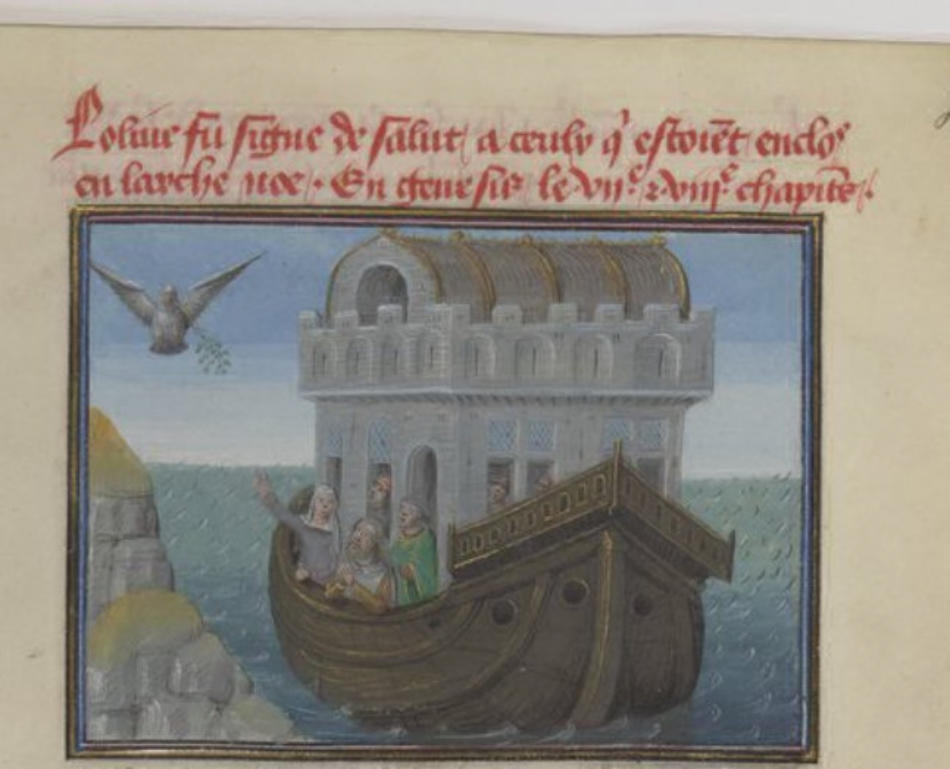 Lolivie fu signe de salut a ceulx q̓ estoiẽt enclos
en larche noe · En genesis le vii.e ⁊ viii.e chapitre ·